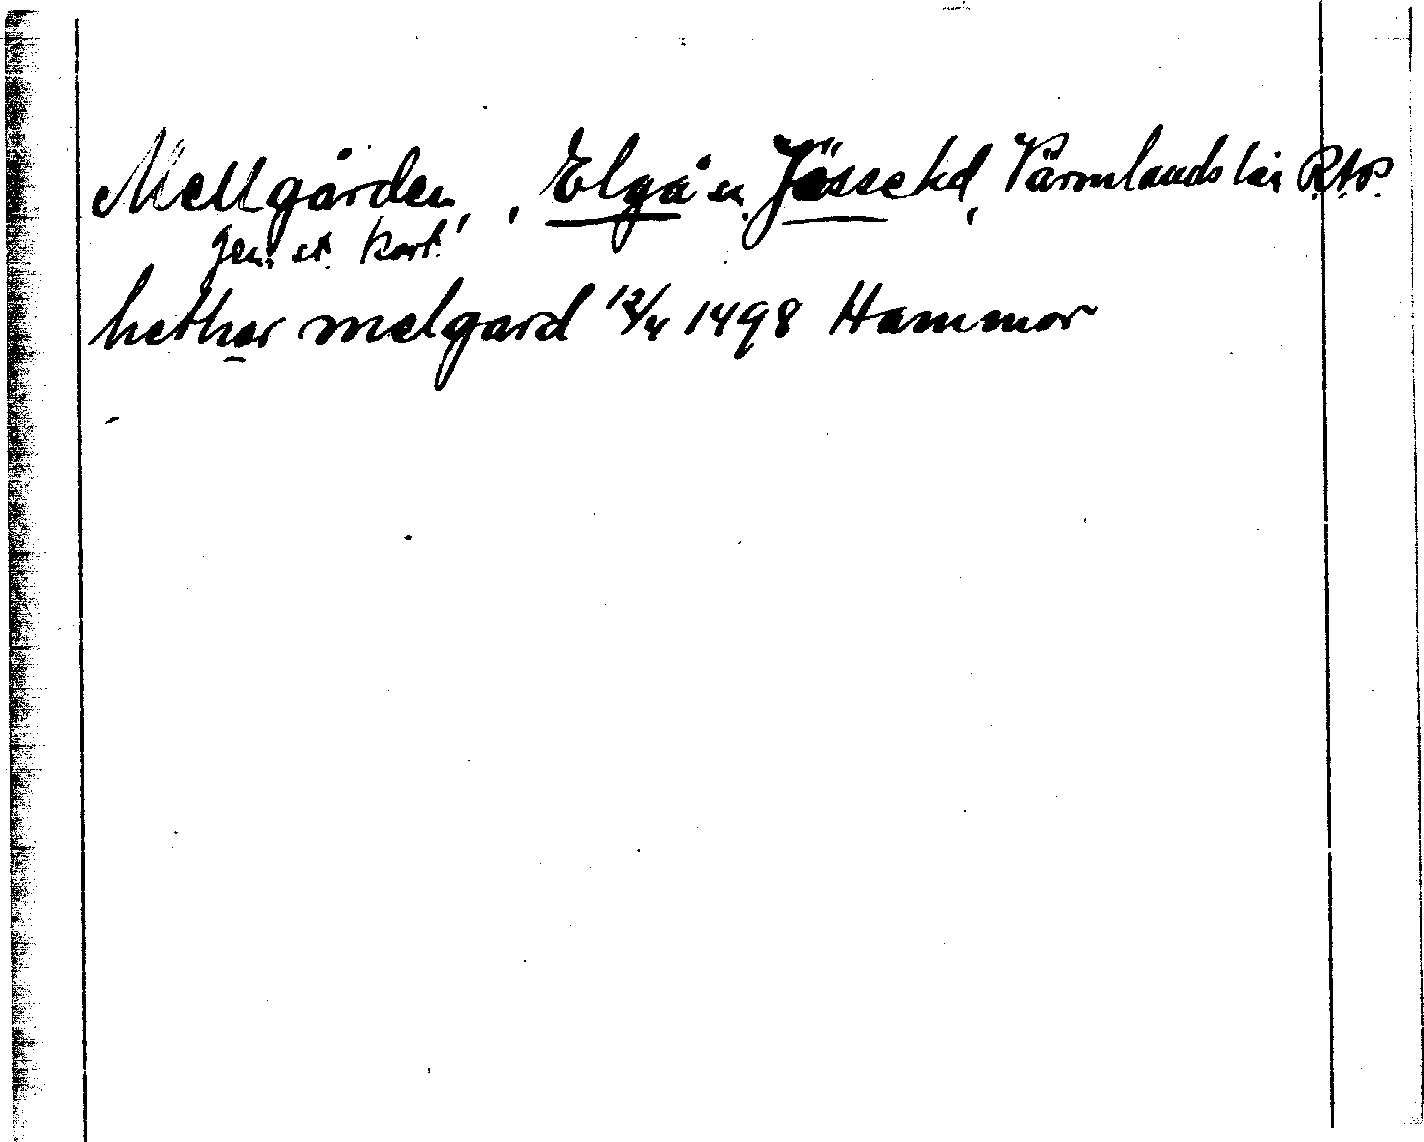 Mellgården, , Elgå sn, Jösse hd, Värmlands län RAP.
gen. et. kort.
hethar melgard 12/4 1498 Hammor